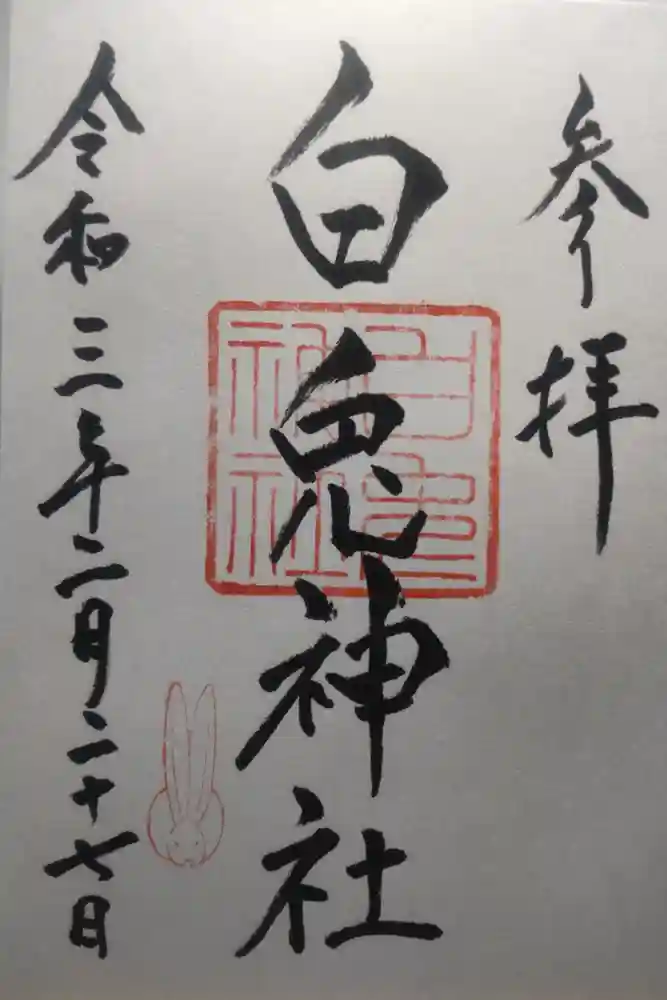 参拝
白兎神社
令和三年二月二十七日